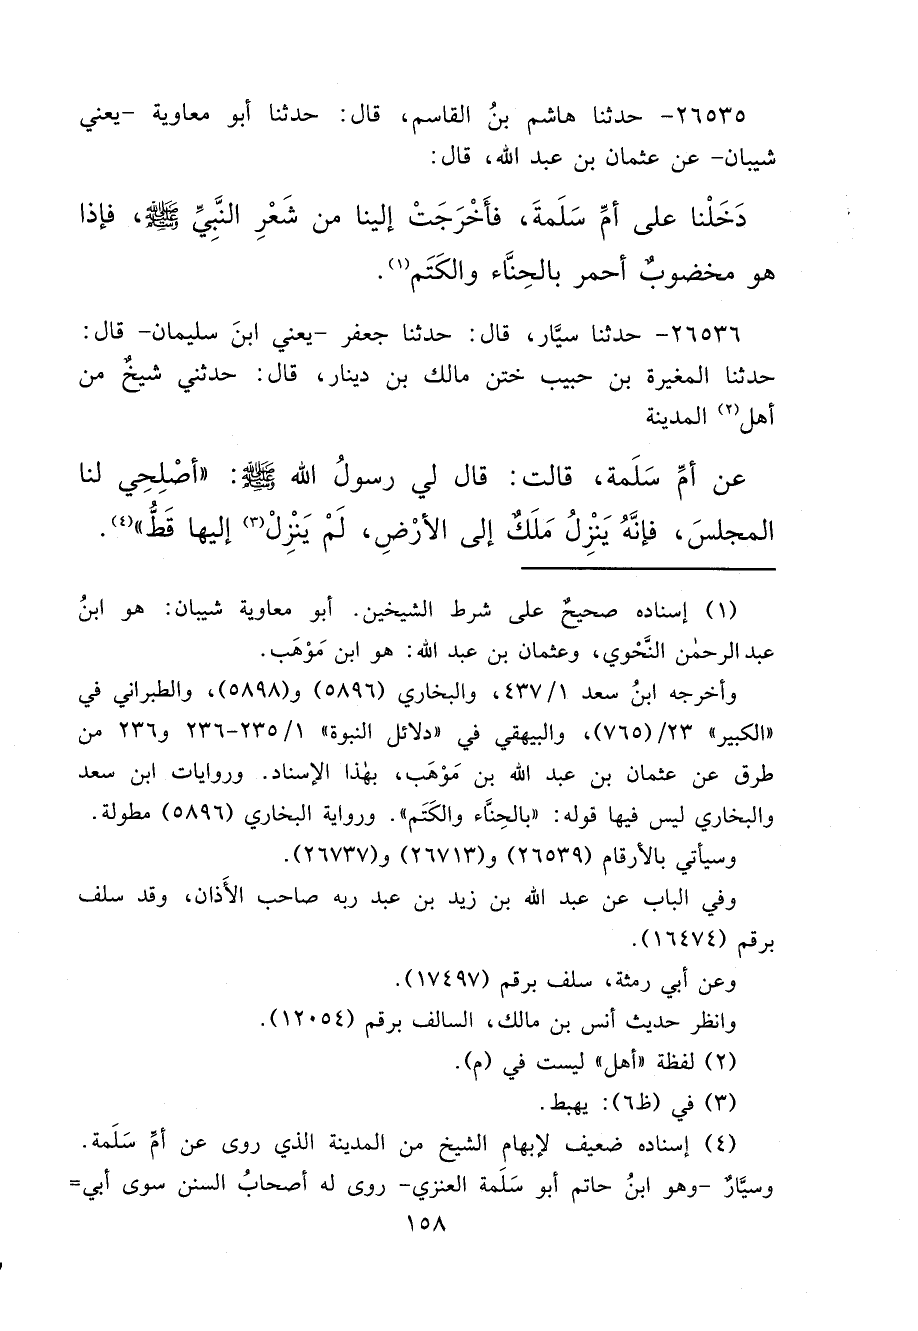 ٢٦٥٣٥- حدثنا هاشم بنُ القاسم، قال: حدثنا أبو معاوية -يعني
شيبان- عن عثمان بن عبد الله، قال:
دَخَلْنا على أمِّ سَلَمةَ، فأَخْرَجَتْ إلينا من شَعْرِ النَّبيِّ ﷺ، فإذا
هو مخضوبٌ أحمر بالحِنَّاء والكَتَم(١).
٢٦٥٣٦- حدثنا سيَّار، قال: حدثنا جعفر -يعني ابنَ سليمان- قال:
حدثنا المغيرة بن حبيب ختن مالك بن دينار، قال: حدثني شيخٌ من
أهل(٢) المدينة
عن أمِّ سَلَمة، قالت: قال لي رسولُ الله ﷺ: «أصْلِحِي لنا
المجلسَ، فإنَّهُ يَنْزِلُ مَلَكٌ إلى الأرْضِ، لَمْ يَنْزِلْ(٣) إليها قَطُّ»(٤).
(١) إسناده صحيحٌ على شرط الشيخين. أبو معاوية شيبان: هو ابنُ
عبد الرحمٰن النَّحْوي، وعثمان بن عبد الله: هو ابن مَوْهَب.
وأخرجه ابنُ سعد ٤٣٧/١، والبخاري (٥٨٩٦) و(٥٨٩٨)، والطبراني في
«الكبير» ٢٣/(٧٦٥)، والبيهقي في «دلائل النبوة» ٢٣٥/١-٢٣٦ و٢٣٦ من
طرق عن عثمان بن عبد الله بن مَوْهَب، بهٰذا الإسناد. وروايات ابن سعد
والبخاري ليس فيها قوله: «بالحِنَّاء والكَتَم». ورواية البخاري (٥٨٩٦) مطولة.
وسيأتي بالأرقام (٢٦٥٣٩) و(٢٦٧١٣) و(٢٦٧٣٧).
وفي الباب عن عبد الله بن زيد بن عبد ربه صاحب الأَذان، وقد سلف
برقم (١٦٤٧٤).
وعن أبي رمثة، سلف برقم (١٧٤٩٧).
وانظر حديث أنس بن مالك، السالف برقم (١٢٠٥٤).
(٢) لفظة «أهل» ليست في (م).
(٣) في (ظ٦): يهبط.
(٤) إسناده ضعيف لإبهام الشيخ من المدينة الذي روى عن أمِّ سَلَمة.
وسيَّارٌ -وهو ابنُ حاتم أبو سَلَمة العنزي- روى له أصحابُ السنن سوى أبي=
١٥٨